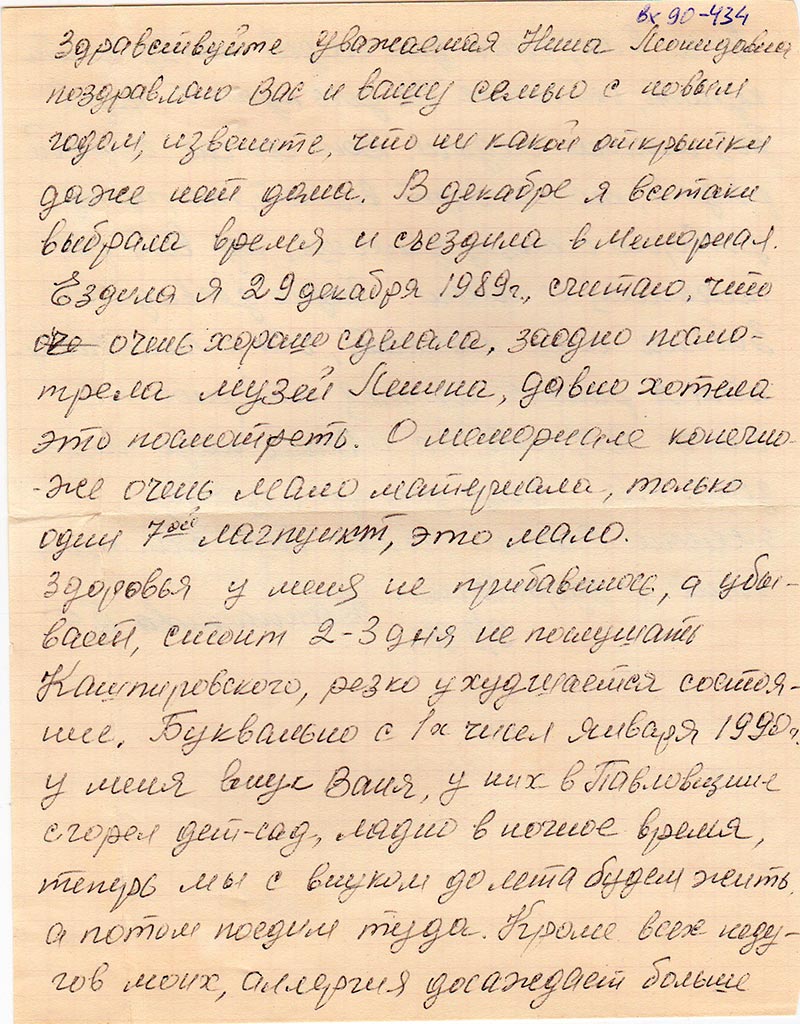 вх 90-434
Здравствуйте уважаемая Нина Леонидовна
поздравляю Вас и вашу семью с новым
годом, извените, что ни какой открытки
даже нет дома. В декабре я всетаки
выбрала время и съездила в Мемориал.
Ездила я 29 декабря 1989г., считаю, что
оче очень хорошо сделала, заодно посмо-
трела музей Ленина, давно хотела
это посмотреть. О мемориале конечно-
-же очень мало материала, только
один 7ой лагпункт, это мало.
Здоровья у меня не прибавилось, а убы-
вает, стоит 2-3 дня не послушать
Кашпировского, резко ухудшается состоя-
ние. Буквально с 1х чисел января 1990г.
у меня внук Ваня, у них в Павловизне
сгорел дет-сад, ладно в ночное время,
теперь мы с внуком до лета будем жить,
а потом поедим туда. Кроме всех неду-
гов моих, аллергия досаждает больше